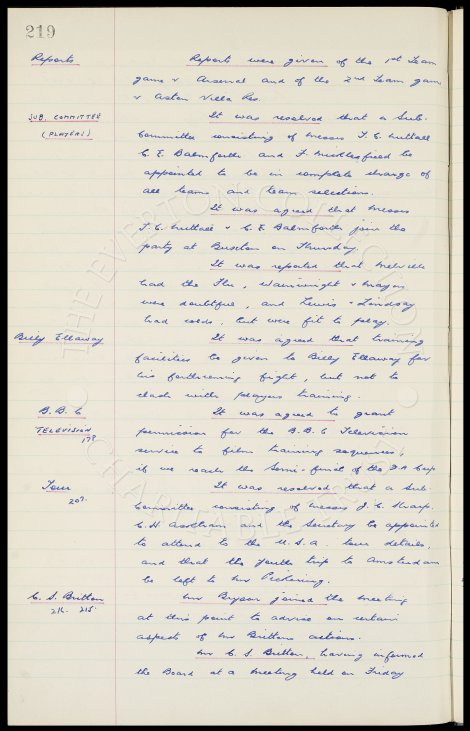 219
Reports
Reports were given of the 1st Team
game v Arsenal and of the 2nd Team game
v Aston Villa Res.
SUB. COMMITTEE
(PLAYERS)
It was resolved that a Sub-
Committee consisting of Messrs T. C. Nuttall
C. E. Balmforth and F. Micklesfield be
appointed to be in complete charge of
all teams and team selections.
It was agreed that Messrs
T. C. Nuttall & C. E. Balmforth join the
party at Buxton on Thursday.
It was reported that Melville
had the Flu, Wainwright & Mayers
were doubtful, and Lewis & Lindsay
had colds, but were fit to play.
Billy Ellaway
It was agreed that training
facilities be given to Billy Ellaway for
his forthcoming fight, but not to
clash with players training.
B.B.C
TELEVISION
178.
It was agreed to grant
permission for the B.B.C Television
service to film training sequences,
if we reach the Semi-final of the F.A Cup.
Tour
207.
It was resolved that a Sub-
Committee consisting of Messrs J. C. Sharp.
C. H. Askham and the Secretary be appointed
to attend to the U.S.A. tour details,
and that the Youth trip to Amsterdam
be left to Mr Pickering.
C. S. Britton
211. 215.
Mr Bryson joined the meeting
at this point to advise on certain
aspects of Mr Brittons actions.
Mr C. S. Britton, having informed
the Board at a Meeting held on Friday
THE EVERTON COLLECTION
CHARITABLE TRUST